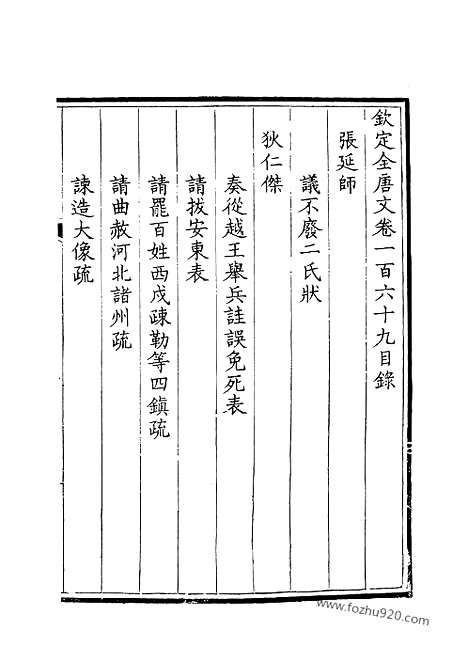 欽定全唐文卷一百六十九目錄
張延師
議不廢二氏狀
狄仁傑
奏從越王舉兵詿誤免死表
請拔安東表
請罷百姓西戍疎勒等四鎮疏
請曲赦河北諸州疏
諫造大像疏
www.fozhu920.com